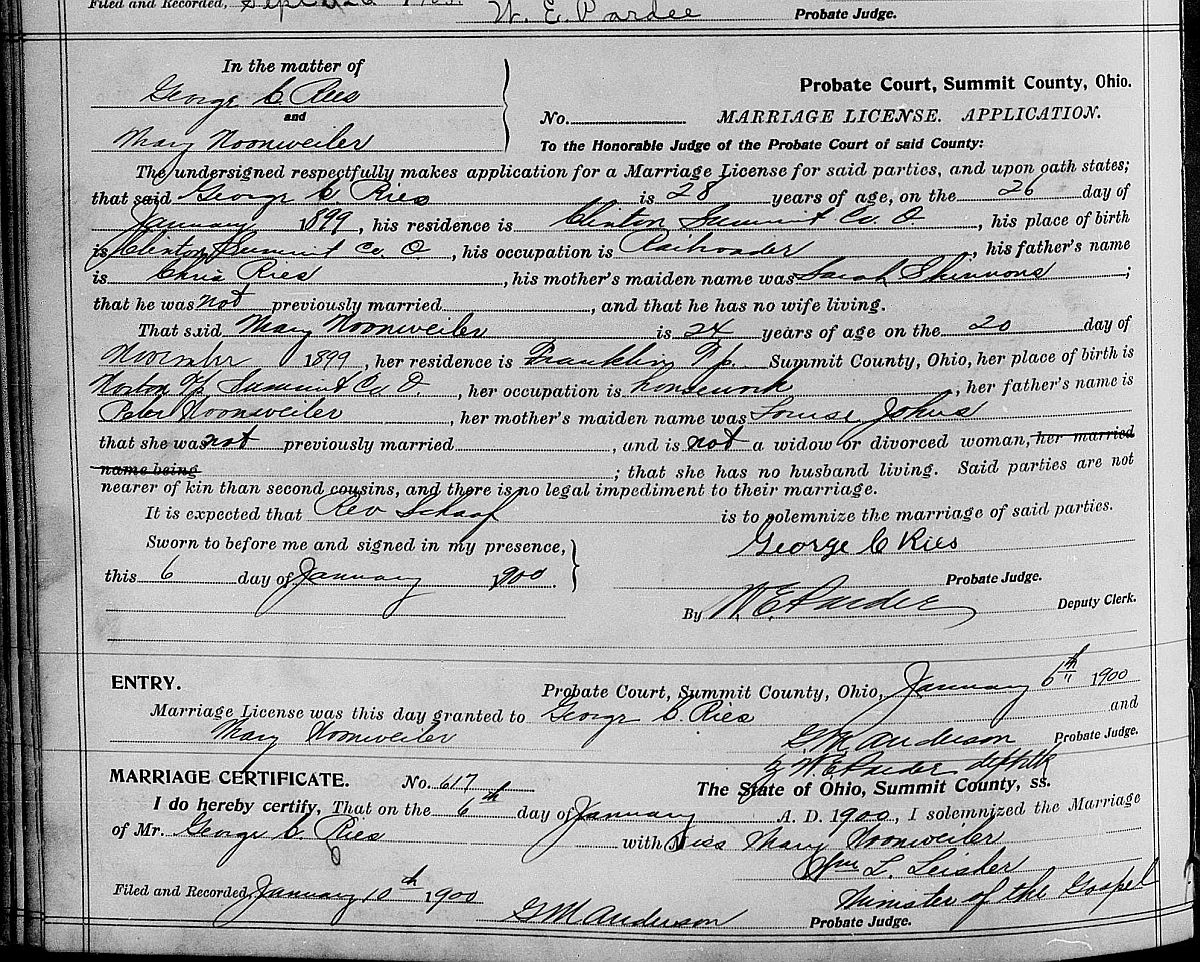 Filed and Recorded, Sept W. E. Pardee Probate Judge.
In the matter of
George C. Ries
and
Mary Noonweiler
Probate Court, Summit County, Ohio.
No. MARRIAGE LICENSE. APPLICATION.
To the Honorable Judge of the Probate Court of said County:
The undersigned respectfully makes application for a Marriage License for said parties, and upon oath states;
that said George C. Ries is 28 years of age, on the 26 day of
January 1899, his residence is Clinton Summit Co. O., his place of birth
is Clinton Summit Co. O, his occupation is Railroader, his father's name
is Chris Ries, his mother's maiden name was Sarah Shinnons;
that he was not previously married, and that he has no wife living.
That said Mary Noonweiler is 24 years of age on the 20 day of
November 1899, her residence is Franklin Tp. Summit County, Ohio, her place of birth is
Norton Tp Summit Co O., her occupation is housework, her father's name is
Peter Noonsweiler, her mother's maiden name was Louise Johns
that she was not previously married, and is not a widow or divorced woman, her married
name being; that she has no husband living. Said parties are not
nearer of kin than second cousins, and there is no legal impediment to their marriage.
It is expected that Rev Schaaf is to solemnize the marriage of said parties.
Sworn to before me and signed in my presence,
George C Ries
this 6 day of January 1900.
Probate Judge.
By W. E. Pardee Deputy Clerk.
ENTRY.
Probate Court, Summit County, Ohio, January 6th 1900
Marriage License was this day granted to George C. Ries and
Mary Noonweiler
G M Anderson Probate Judge.
by W. E. Pardee dep clk
MARRIAGE CERTIFICATE. No. 617
The State of Ohio, Summit County, ss.
I do hereby certify, That on the 6th day of January A. D. 1900, I solemnized the Marriage
of Mr. George C. Ries with Miss Mary Noonweiler
Wm L. Leisher
Minister of the Gospel
Filed and Recorded, January 10th 1900
G M Anderson Probate Judge.